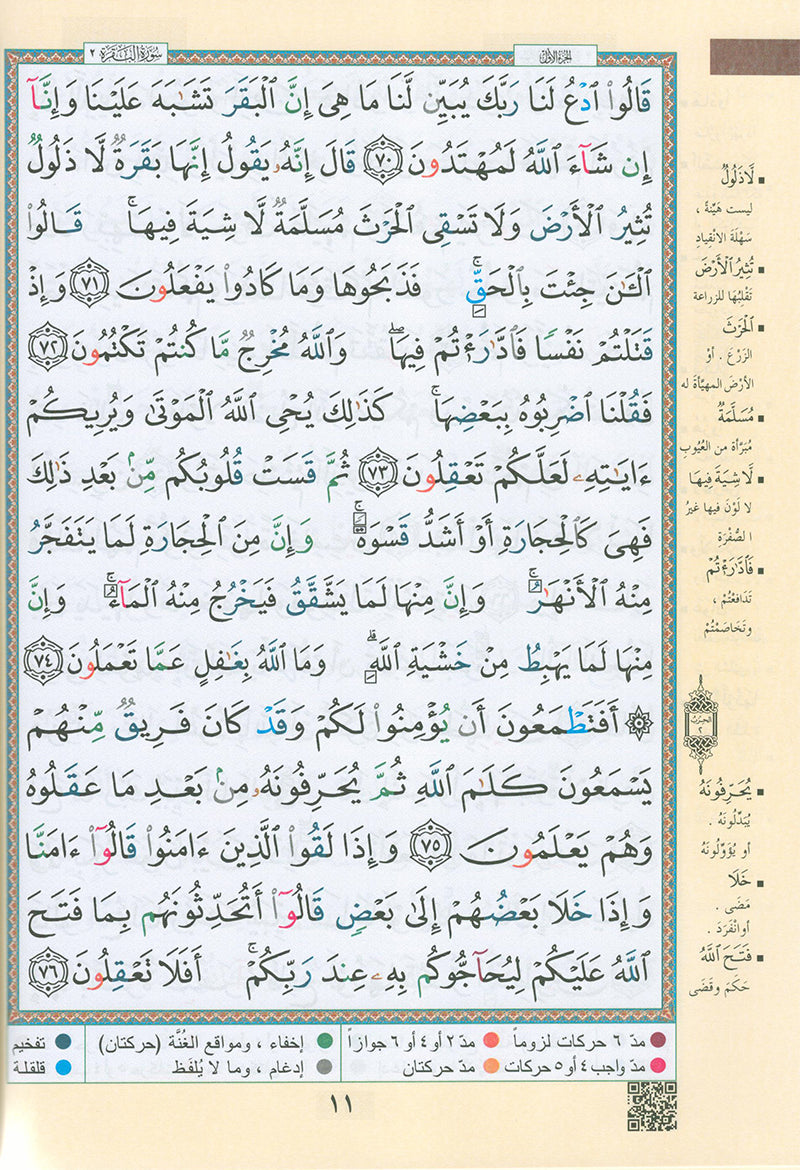 سُورَةُ البَقَرَة ٢
الجزء الأول
قَالُوا۟ ٱدْعُ لَنَا رَبَّكَ يُبَيِّن لَّنَا مَا هِىَ إِنَّ ٱلْبَقَرَ تَشَـٰبَهَ عَلَيْنَا وَإِنَّآ
إِن شَآءَ ٱللَّهُ لَمُهْتَدُونَ ٧٠ قَالَ إِنَّهُۥ يَقُولُ إِنَّهَا بَقَرَةٌ لَّا ذَلُولٌ
تُثِيرُ ٱلْأَرْضَ وَلَا تَسْقِى ٱلْحَرْثَ مُسَلَّمَةٌ لَّا شِيَةَ فِيهَا ۚ قَالُوا۟
ٱلْـَٔـٰنَ جِئْتَ بِٱلْحَقِّ ۚ فَذَبَحُوهَا وَمَا كَادُوا۟ يَفْعَلُونَ ٧١ وَإِذْ
قَتَلْتُمْ نَفْسًا فَٱدَّٰرَْٰٔتُمْ فِيهَا ۖ وَٱللَّهُ مُخْرِجٌ مَّا كُنتُمْ تَكْتُمُونَ ٧٢
فَقُلْنَا ٱضْرِبُوهُ بِبَعْضِهَا ۚ كَذَٰلِكَ يُحْىِ ٱللَّهُ ٱلْمَوْتَىٰ وَيُرِيكُمْ
ءَايَـٰتِهِۦ لَعَلَّكُمْ تَعْقِلُونَ ٧٣ ثُمَّ قَسَتْ قُلُوبُكُم مِّنۢ بَعْدِ ذَٰلِكَ
فَهِىَ كَٱلْحِجَارَةِ أَوْ أَشَدُّ قَسْوَةً ۚ وَإِنَّ مِنَ ٱلْحِجَارَةِ لَمَا يَتَفَجَّرُ
مِنْهُ ٱلْأَنْهَـٰرُ ۚ وَإِنَّ مِنْهَا لَمَا يَشَّقَّقُ فَيَخْرُجُ مِنْهُ ٱلْمَآءُ ۚ وَإِنَّ
مِنْهَا لَمَا يَهْبِطُ مِنْ خَشْيَةِ ٱللَّهِ ۗ وَمَا ٱللَّهُ بِغَـٰفِلٍ عَمَّا تَعْمَلُونَ ٧٤
۞ أَفَتَطْمَعُونَ أَن يُؤْمِنُوا۟ لَكُمْ وَقَدْ كَانَ فَرِيقٌ مِّنْهُمْ
يَسْمَعُونَ كَلَـٰمَ ٱللَّهِ ثُمَّ يُحَرِّفُونَهُۥ مِنۢ بَعْدِ مَا عَقَلُوهُ
وَهُمْ يَعْلَمُونَ ٧٥ وَإِذَا لَقُوا۟ ٱلَّذِينَ ءَامَنُوا۟ قَالُوٓا۟ ءَامَنَّا
وَإِذَا خَلَا بَعْضُهُمْ إِلَىٰ بَعْضٍ قَالُوٓا۟ أَتُحَدِّثُونَهُم بِمَا فَتَحَ
ٱللَّهُ عَلَيْكُمْ لِيُحَآجُّوكُم بِهِۦ عِندَ رَبِّكُمْ ۚ أَفَلَا تَعْقِلُونَ ٧٦
▪ لَّا ذَلُولٌ
ليست هَيِّنةً ،
سَهْلَةَ الانْقِيادِ
▪ تُثِيرُ ٱلْأَرْضَ
تَقْلِبُهَا للزراعة
▪ ٱلْحَرْثَ
الزَرْعَ . أوْ
الأرْضَ المهيَّأة له
▪ مُسَلَّمَةٌ
مُبَرَّأة من العُيُوبِ
▪ لَّا شِيَةَ فِيهَا
لا لَوْنَ فيها غيرُ
الصُّفْرَةِ
▪ فَٱدَّٰرَْٰٔتُمْ
تَدَافَعْتُمْ ،
وتَخَاصَمْتُمْ
الحزب
٢
▪ يُحَرِّفُونَهُ
يُبَدِّلُونَهُ .
أو يُؤَوِّلُونَهُ
▪ خَلَا
مَضَى .
أو انْفَرَدَ .
▪ فَتَحَ ٱللَّهُ
حَكَمَ وقَضَى
مدّ ٦ حركات لزوماً مدّ ٢ أو ٤ أو ٦ جوازاً إخفاء ، ومواقع الغُنَّة (حركتان) تفخيم
مدّ واجب ٤ أو ٥ حركات مدّ حركتان إدغام ، وما لا يُلفَظ قلقلة
١١